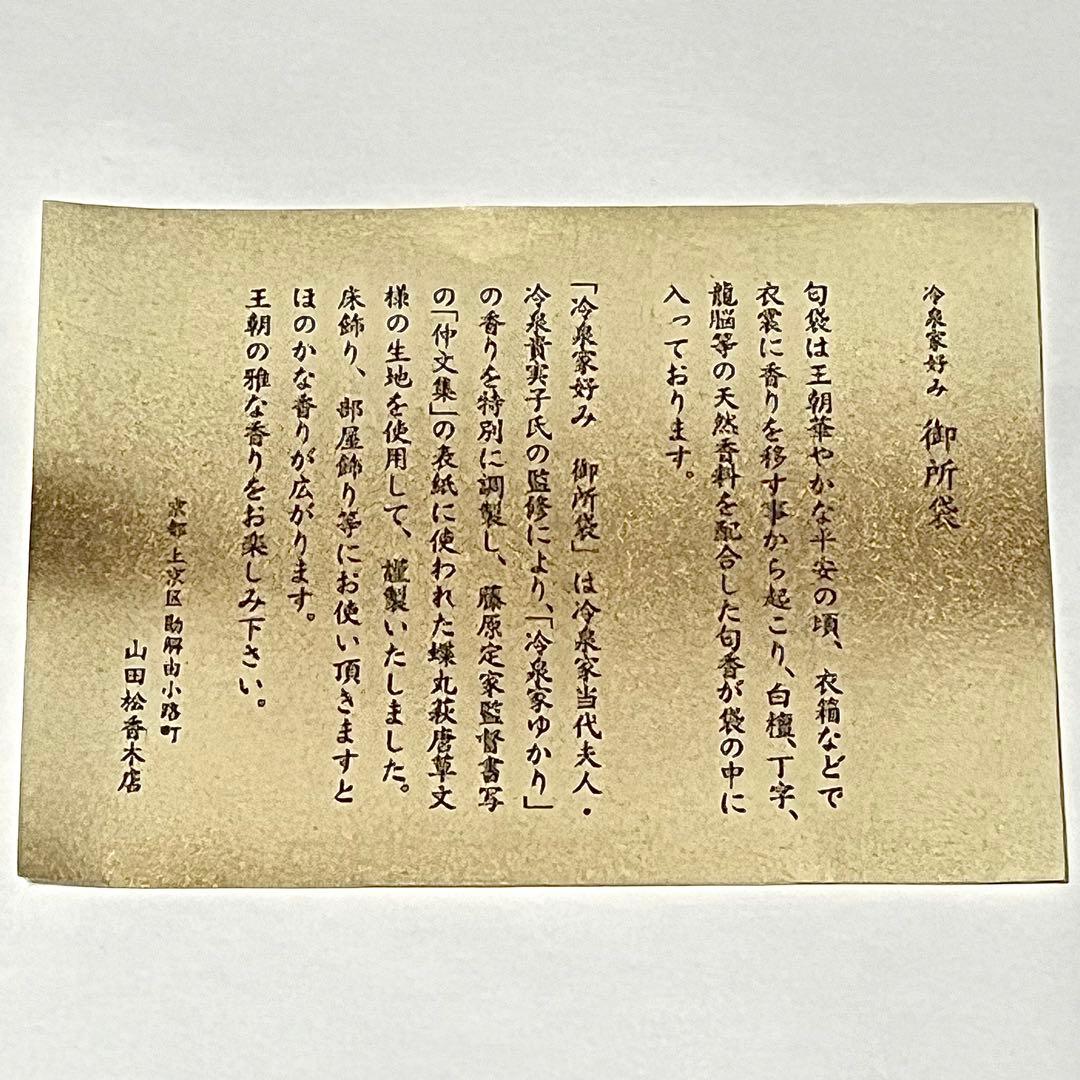 冷泉家好み 御所袋
匂袋は王朝華やかな平安の頃、衣箱などで
衣裳に香りを移す事から起こり、白檀、丁字、
龍脳等の天然香料を配合した匂香が袋の中に
入っております。
「冷泉家好み 御所袋」は冷泉家当代夫人・
冷泉貴実子氏の監修により、「冷泉家ゆかり」
の香りを特別に調製し、藤原定家監督書写
の「仲文集」の表紙に使われた蝶丸萩唐草文
様の生地を使用して、謹製いたしました。
床飾り、部屋飾り等にお使い頂きますと
ほのかな香りが広がります。
王朝の雅な香りをお楽しみ下さい。
京都上京区勘解由小路町
山田松香木店